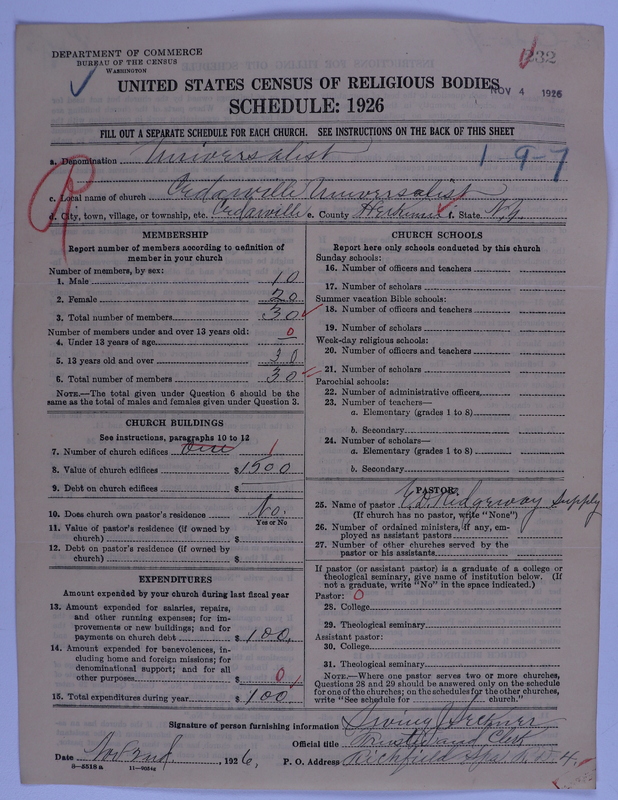 DEPARTMENT OF COMMERCE
BUREAU OF THE CENSUS
WASHINGTON
232
UNITED STATES CENSUS OF RELIGIOUS BODIES
NOV 4 1926
SCHEDULE: 1926
FILL OUT A SEPARATE SCHEDULE FOR EACH CHURCH. SEE INSTRUCTIONS ON THE BACK OF THIS SHEET
a. Denomination Universalist 1-9-7
c. Local name of church Cedarville Universalist
d. City, town, village, or township, etc. Cedarville e. County Herkimer f. State N.Y.
MEMBERSHIP
Report number of members according to definition of member in your church
Number of members, by sex:
1. Male 10
2. Female 20
3. Total number of members 30
Number of members under and over 13 years old:
4. Under 13 years of age 0
5. 13 years old and over 30
6. Total number of members 30
NOTE.—The total given under Question 6 should be
same as the total of males and females given under Question 3.
CHURCH BUILDINGS
See instructions, paragraphs 10 to 12
7. Number of church edifices One 1
8. Value of church edifices $1500
9. Debt on church edifices $
10. Does church own pastor's residence No.
Yes or No
11. Value of pastor's residence (if owned by
church) $
12. Debt on pastor's residence (if owned by
church) $
EXPENDITURES
Amount expended by your church during last fiscal year
13. Amount expended for salaries, repairs,
and other running expenses; for im-
provements or new buildings; and for
payments on church debt $ 100.
14. Amount expended for benevolences, in-
cluding home and foreign missions; for
denominational support; and for all
other purposes $ 0
15. Total expenditures during year $ 100
CHURCH SCHOOLS
Report here only schools conducted by this church
Sunday schools:
16. Number of officers and teachers
17. Number of scholars
Summer vacation Bible schools:
18. Number of officers and teachers
19. Number of scholars
Week-day religious schools:
20. Number of officers and teachers
21. Number of scholars
Parochial schools:
22. Number of administrative officers
23. Number of teachers—
a. Elementary (grades 1 to 8)
b. Secondary
24. Number of scholars—
a. Elementary (grades 1 to 8)
b. Secondary
PASTOR
25. Name of pastor Ridgeway Supply
(If church has no pastor, write "None")
26. Number of ordained ministers, if any, em-
ployed as assistant pastors
27. Number of other churches served by the
pastor or his assistants
If pastor (or assistant pastor) is a graduate of a college or
theological seminary, give name of institution below. (If
not a graduate, write "No" in the space indicated.)
Pastor: 0
28. College
29. Theological seminary
Assistant pastor:
30. College
31. Theological seminary
NOTE.—Where one pastor serves two or more churches,
Questions 28 and 29 should be answered only on the schedule
for one of the churches; on the schedules for the other churches,
write "See schedule for church."
Signature of person furnishing information
Official title Trustee and Clerk
Date Nov 3rd, 1926, P. O. Address Richfield Spa
8-5518a 11-9034